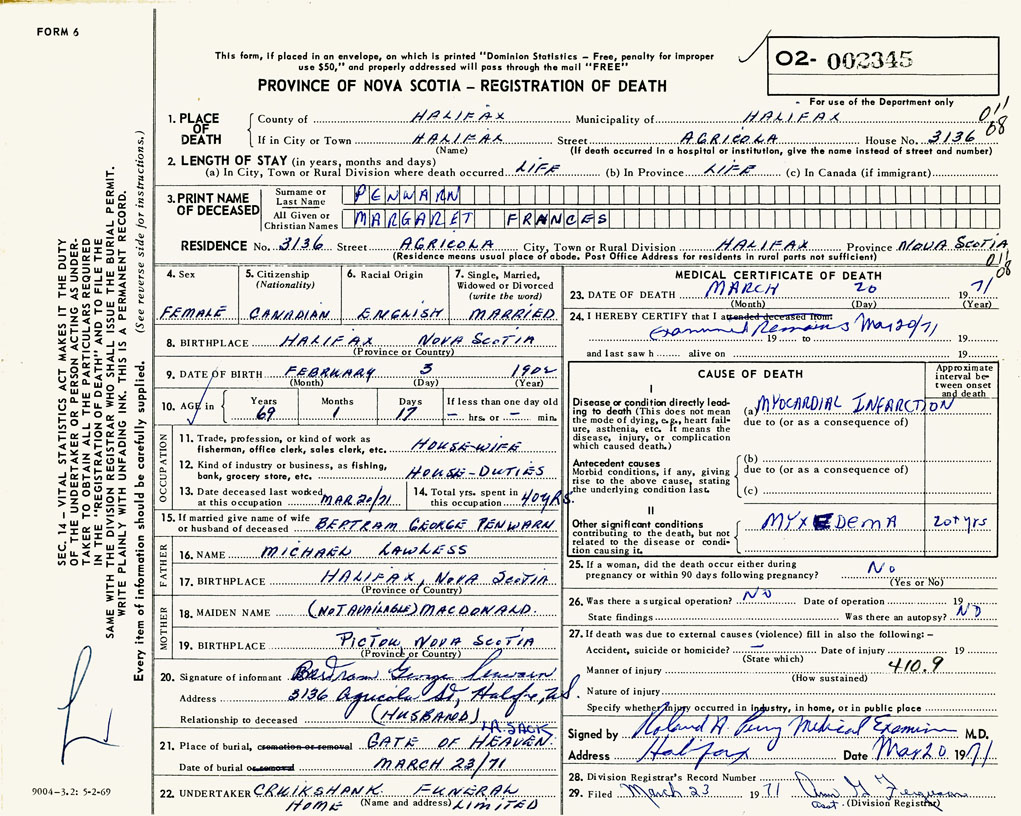 FORM 6
This form, if placed in an envelope, on which is printed "Dominion Statistics - Free, penalty for improper
use $50," and properly addressed will pass through the mail "FREE"
O2- 002345
PROVINCE OF NOVA SCOTIA - REGISTRATION OF DEATH
- For use of the Department only
011
08
1. PLACE OF DEATH County of HALIFAX Municipality of HALIFAX
If in City or Town HALIFAX Street AGRICOLA House No. 3136
(Name) (If death occurred in a hospital or institution, give the name instead of street and number)
2. LENGTH OF STAY (in years, months and days)
(a) In City, Town or Rural Division where death occurred LIFE (b) In Province LIFE (c) In Canada (if immigrant)
3. PRINT NAME OF DECEASED Surname or Last Name PENWARN
All Given or Christian Names MARGARET FRANCES
RESIDENCE No. 3136 Street AGRICOLA City, Town or Rural Division HALIFAX Province NOVA SCOTIA
(Residence means usual place of abode. Post Office Address for residents in rural parts not sufficient)
011
08
4. Sex FEMALE
5. Citizenship (Nationality) CANADIAN
6. Racial Origin ENGLISH
7. Single, Married, Widowed or Divorced (write the word) MARRIED
8. BIRTHPLACE HALIFAX NOVA SCOTIA
(Province or Country)
9. DATE OF BIRTH FEBRUARY 3 1902
(Month) (Day) (Year)
10. AGE in Years 69 Months 1 Days 17 If less than one day old - hrs. or - min.
OCCUPATION
11. Trade, profession, or kind of work as
fisherman, office clerk, sales clerk, etc. HOUSE-WIFE
12. Kind of industry or business, as fishing,
bank, grocery store, etc. HOUSE-DUTIES
13. Date deceased last worked at this occupation MAR 20/71
14. Total yrs. spent in this occupation 40 YRS.
15. If married give name of wife
or husband of deceased BERTRAM GEORGE PENWARN
FATHER
16. NAME MICHAEL LAWLESS
17. BIRTHPLACE HALIFAX, NOVA SCOTIA
(Province or Country)
MOTHER
18. MAIDEN NAME (NOT AVAILABLE) MACDONALD.
19. BIRTHPLACE PICTOU, NOVA SCOTIA
(Province or Country)
20. Signature of informant Bertram George Penwarn
Address 3136 Agricola St, Halifax, N.S.
Relationship to deceased (HUSBAND)
21. Place of burial, cremation or removal GATE OF HEAVEN. LR. SACK
Date of burial or removal MARCH 23/71
22. UNDERTAKER CRUIKSHANK FUNERAL
HOME (Name and address) LIMITED
MEDICAL CERTIFICATE OF DEATH
23. DATE OF DEATH MARCH 20 1971
(Month) (Day) (Year)
24. I HEREBY CERTIFY that I attended deceased from:
Examined Remains Mar 20/71
19 to 19
and last saw h alive on 19
CAUSE OF DEATH
Approximate interval between onset and death
I
Disease or condition directly leading to death (This does not mean the mode of dying, e.g., heart failure, asthenia, etc. It means the disease, injury, or complication which caused death.)
(a) MYOCARDIAL INFARCTION
due to (or as a consequence of)
Antecedent causes
Morbid conditions, if any, giving rise to the above cause, stating the underlying condition last.
(b)
due to (or as a consequence of)
(c)
II
Other significant conditions contributing to the death, but not related to the disease or condition causing it.
MYXEDEMA 20+ yrs
25. If a woman, did the death occur either during
pregnancy or within 90 days following pregnancy? No
(Yes or No)
26. Was there a surgical operation? NO Date of operation 19
State findings Was there an autopsy? NO
27. If death was due to external causes (violence) fill in also the following: -
Accident, suicide or homicide? - Date of injury 19
(State which)
Manner of injury 410.9
(How sustained)
Nature of injury
Specify whether injury occurred in industry, in home, or in public place
Signed by Roland H Perry Medical Examiner M.D.
Address Halifax Date Mar 20 1971
28. Division Registrar's Record Number
29. Filed March 23 1971 Ferguson
Asst. (Division Registrar)
SEC. 14 - VITAL STATISTICS ACT MAKES IT THE DUTY
OF THE UNDERTAKER OR PERSON ACTING AS UNDER-
TAKER TO OBTAIN ALL THE PARTICULARS REQUIRED
IN THE "REGISTRATION OF DEATH" AND TO FILE THE
SAME WITH THE DIVISION REGISTRAR WHO SHALL ISSUE THE BURIAL PERMIT.
WRITE PLAINLY WITH UNFADING INK. THIS IS A PERMANENT RECORD.
Every item of information should be carefully supplied. (See reverse side for instructions.)
9004-3.2: 5-2-69